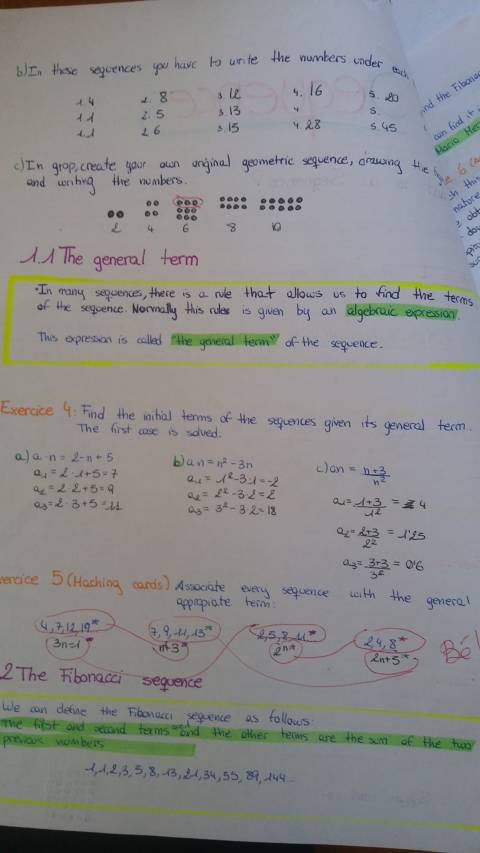 b) In these sequences you have to write the numbers under each
1. 4 2. 8 3. 12 4. 16 5. 20
1. 1 2. 5 3. 13 4. 5.
1. 1 2. 6 3. 15 4. 28 5. 45
c) In grop, create your own original geometric sequence, drawing the
and writing the numbers.
2 4 6 8 10
1.1 The general term
In many sequences, there is a rule that allows us to find the terms
of the sequence. Normally this rules is given by an algebraic expression.
This expression is called "the general term" of the sequence.
Exercice 4: Find the initial terms of the sequences given its general term.
The first case is solved.
a) a·n = 2·n + 5
a1 = 2·1+5 = 7
a2 = 2·2+5 = 9
a3 = 2·3+5 = 11
b) an = n² - 3n
a1 = 1² - 3·1 = -2
a2 = 2² - 3·2 = 2
a3 = 3² - 3·2 = 18
c) an = n+3/n²
a1 = 1+3/1² = 4
a2 = 2+3/2² = 1'25
a3 = 3+3/3² = 0'6
xercice 5 (Maching cards) Associate every sequence with the general
appropiate term:
4, 7, 12, 19* 7, 9, 11, 13* 2, 5, 8, 11* 2, 4, 8*
3n=1* n+3* 2n* 2n+5*
Bé!
2 The Fibonacci sequence
We can define the Fibonacci sequence as follows:
The first and second terms and the other terms are the sum of the two
previous numbers
1, 1, 2, 3, 5, 8, 13, 21, 34, 55, 89, 144...
ind the Fibona
can find it